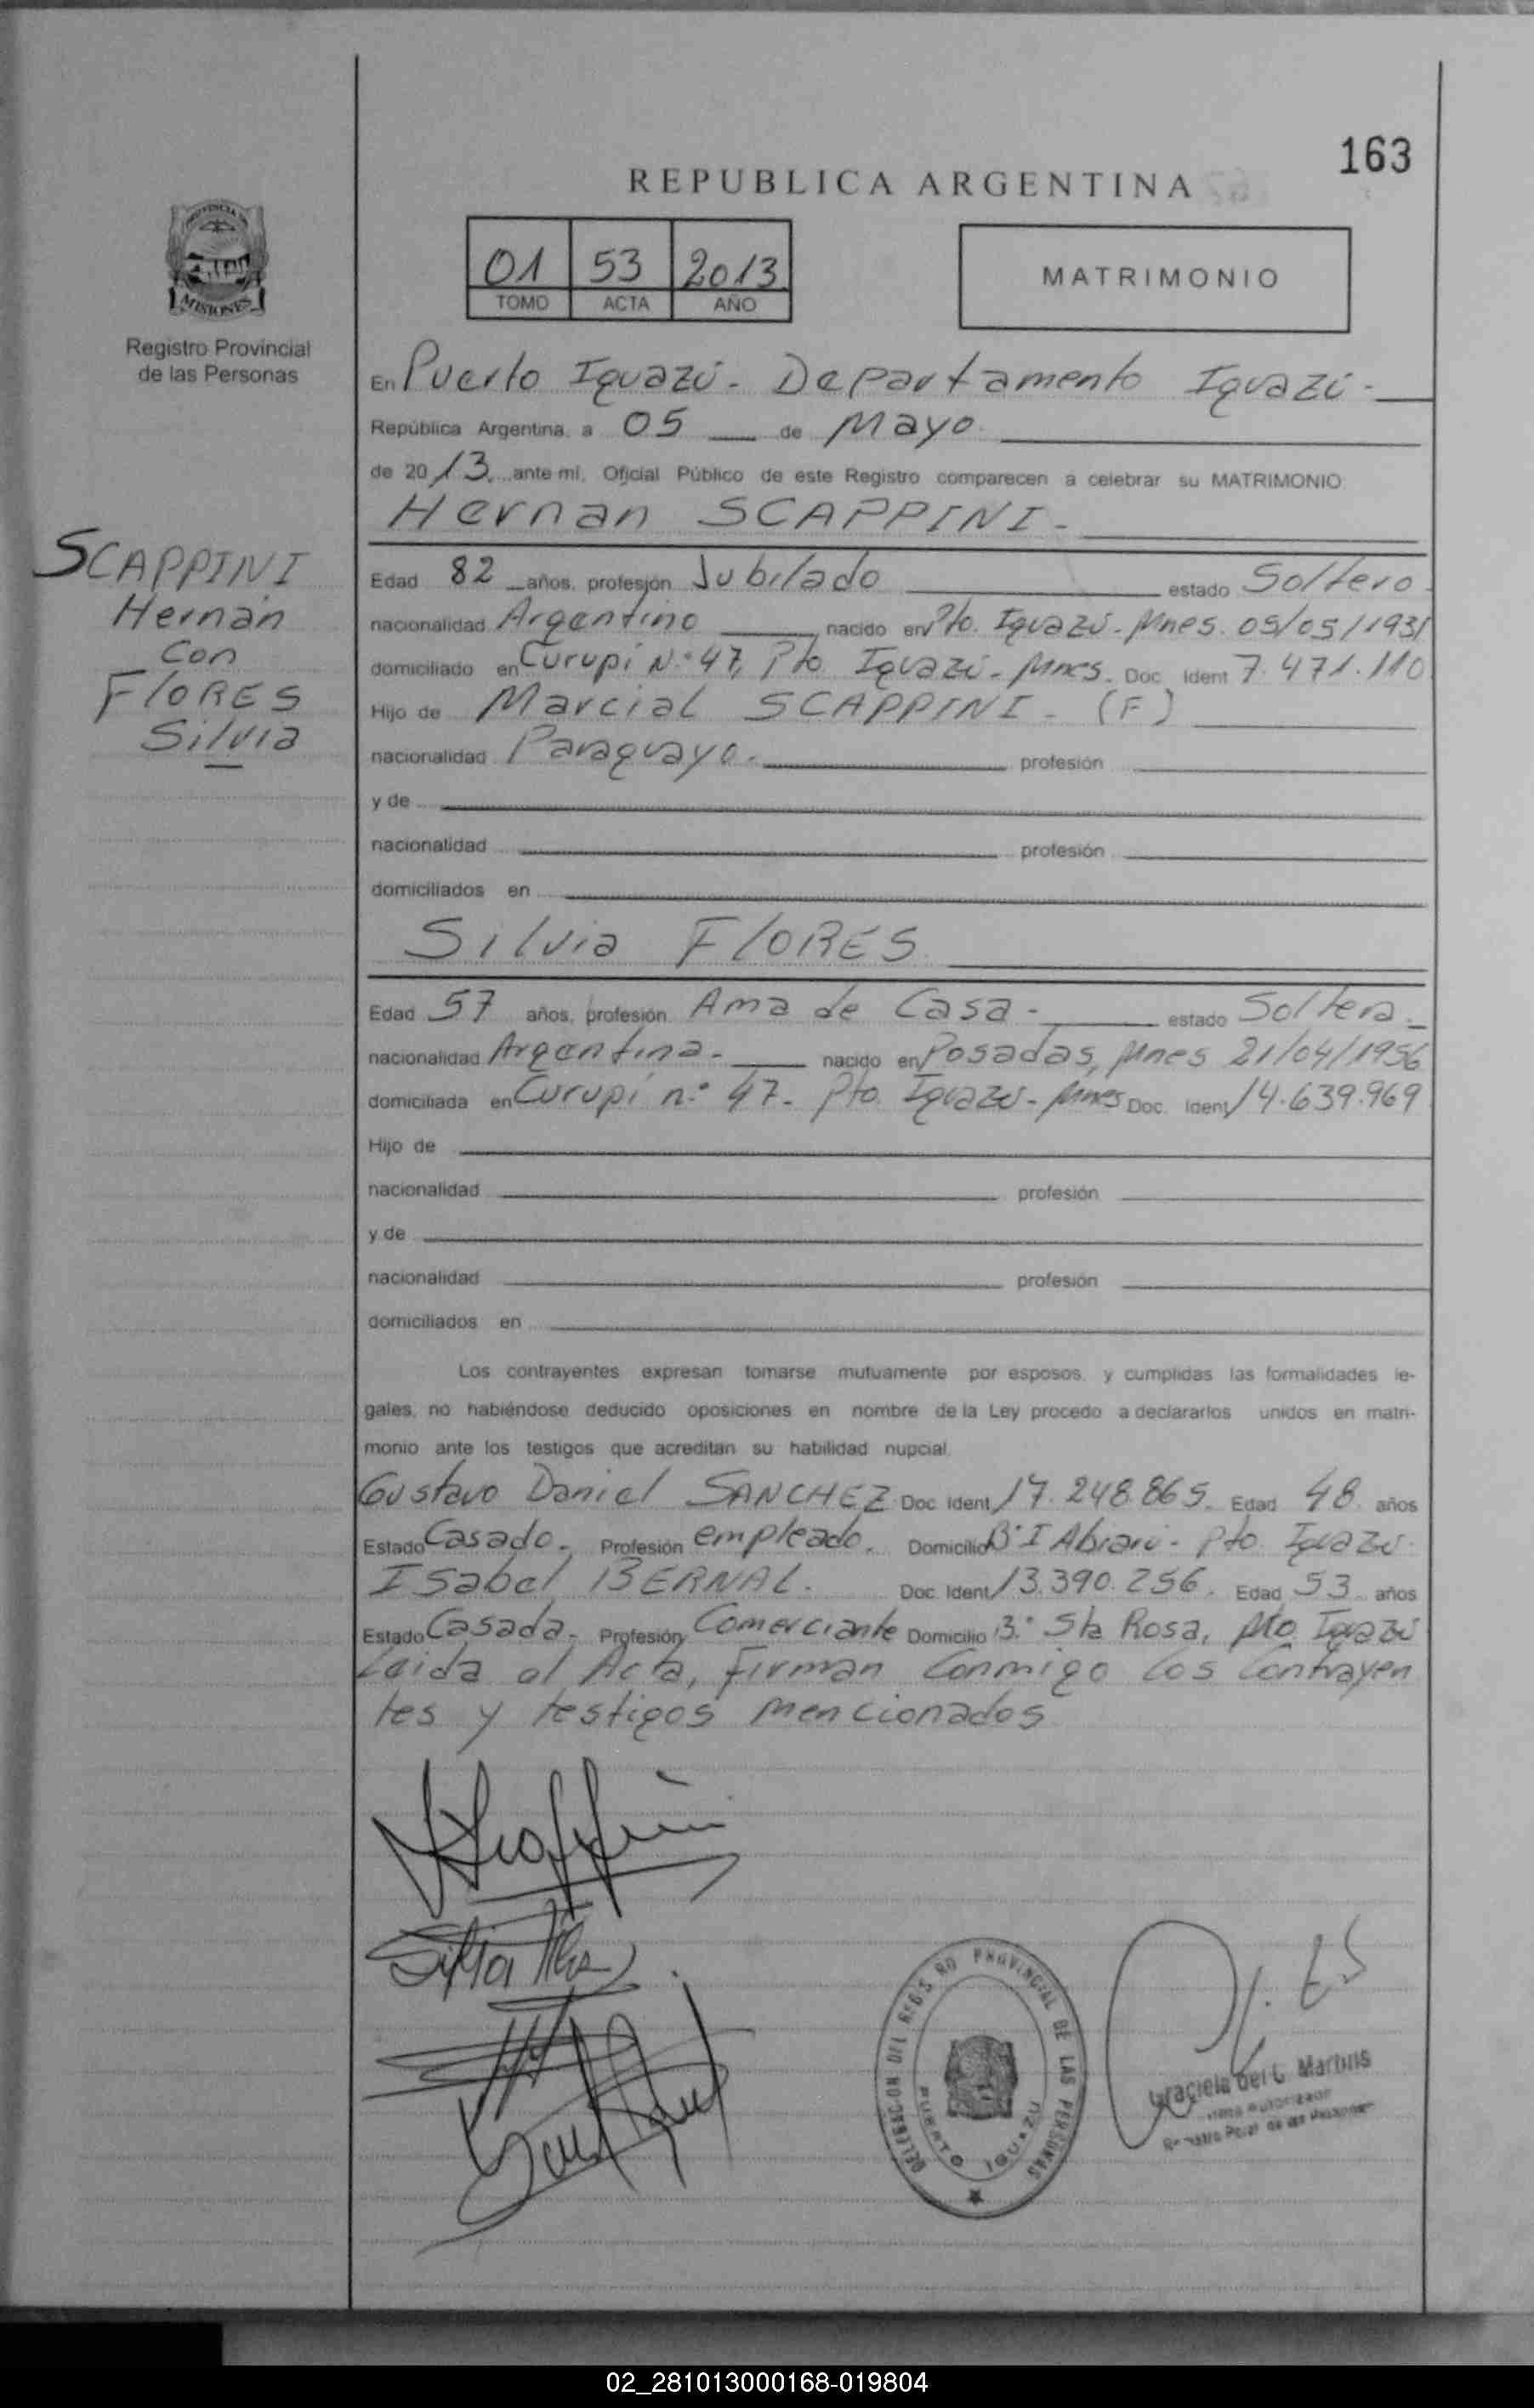 163
REPUBLICA ARGENTINA
01 53 2013
TOMO ACTA AÑO
MATRIMONIO
MISIONES
Registro Provincial
de las Personas
SCAPPINI
Hernán
Con
FlORES
Silvia
En Puerto Iguazú - Departamento Iguazú -
República Argentina, a 05 de Mayo
de 2013, ante mí, Oficial Público de este Registro comparecen a celebrar su MATRIMONIO:
Hernan SCAPPINI -
Edad 82 años, profesión Jubilado estado Soltero
nacionalidad Argentino nacido en Pto. Iguazú - Mnes. 05/05/1931
domiciliado en Curupí N:º 47, Pto Iguazú - Mnes. Doc. Ident 7.471.110
Hijo de Marcial SCAPPINI - (F)
nacionalidad Paraguayo - profesión
y de
nacionalidad profesión
domiciliados en
Silvia FlORES
Edad 57 años, profesión Ama de Casa - estado Soltera -
nacionalidad Argentina - nacido en Posadas, Mnes 21/04/1956
domiciliada en Curupí n:º 47 - Pto. Iguazú - Mnes Doc. Ident 14.639.969
Hijo de
nacionalidad profesión
y de
nacionalidad profesión
domiciliados en
Los contrayentes expresan tomarse mutuamente por esposos, y cumplidas las formalidades le-
gales, no habiéndose deducido oposiciones en nombre de la Ley procedo a declararlos unidos en matri-
monio ante los testigos que acreditan su habilidad nupcial.
Gustavo Daniel SANCHEZ Doc. Ident 17.248.865 - Edad 48 años
Estado Casado - Profesión empleado. Domicilio Bº I - Pto. Iguazú
Isabel BERNAL. Doc. Ident 13.390.256. Edad 53 años
Estado Casada - Profesión Comerciante Domicilio B:º Sta Rosa, Pto. Iguazú
Leida el Acta, firman Conmigo los Contrayen
tes y testigos mencionados
DELEGACION DEL REGISTRO PROVINCIAL DE LAS PERSONAS
PUERTO IGUAZU
Graciela Del C. Martins
02_281013000168-019804